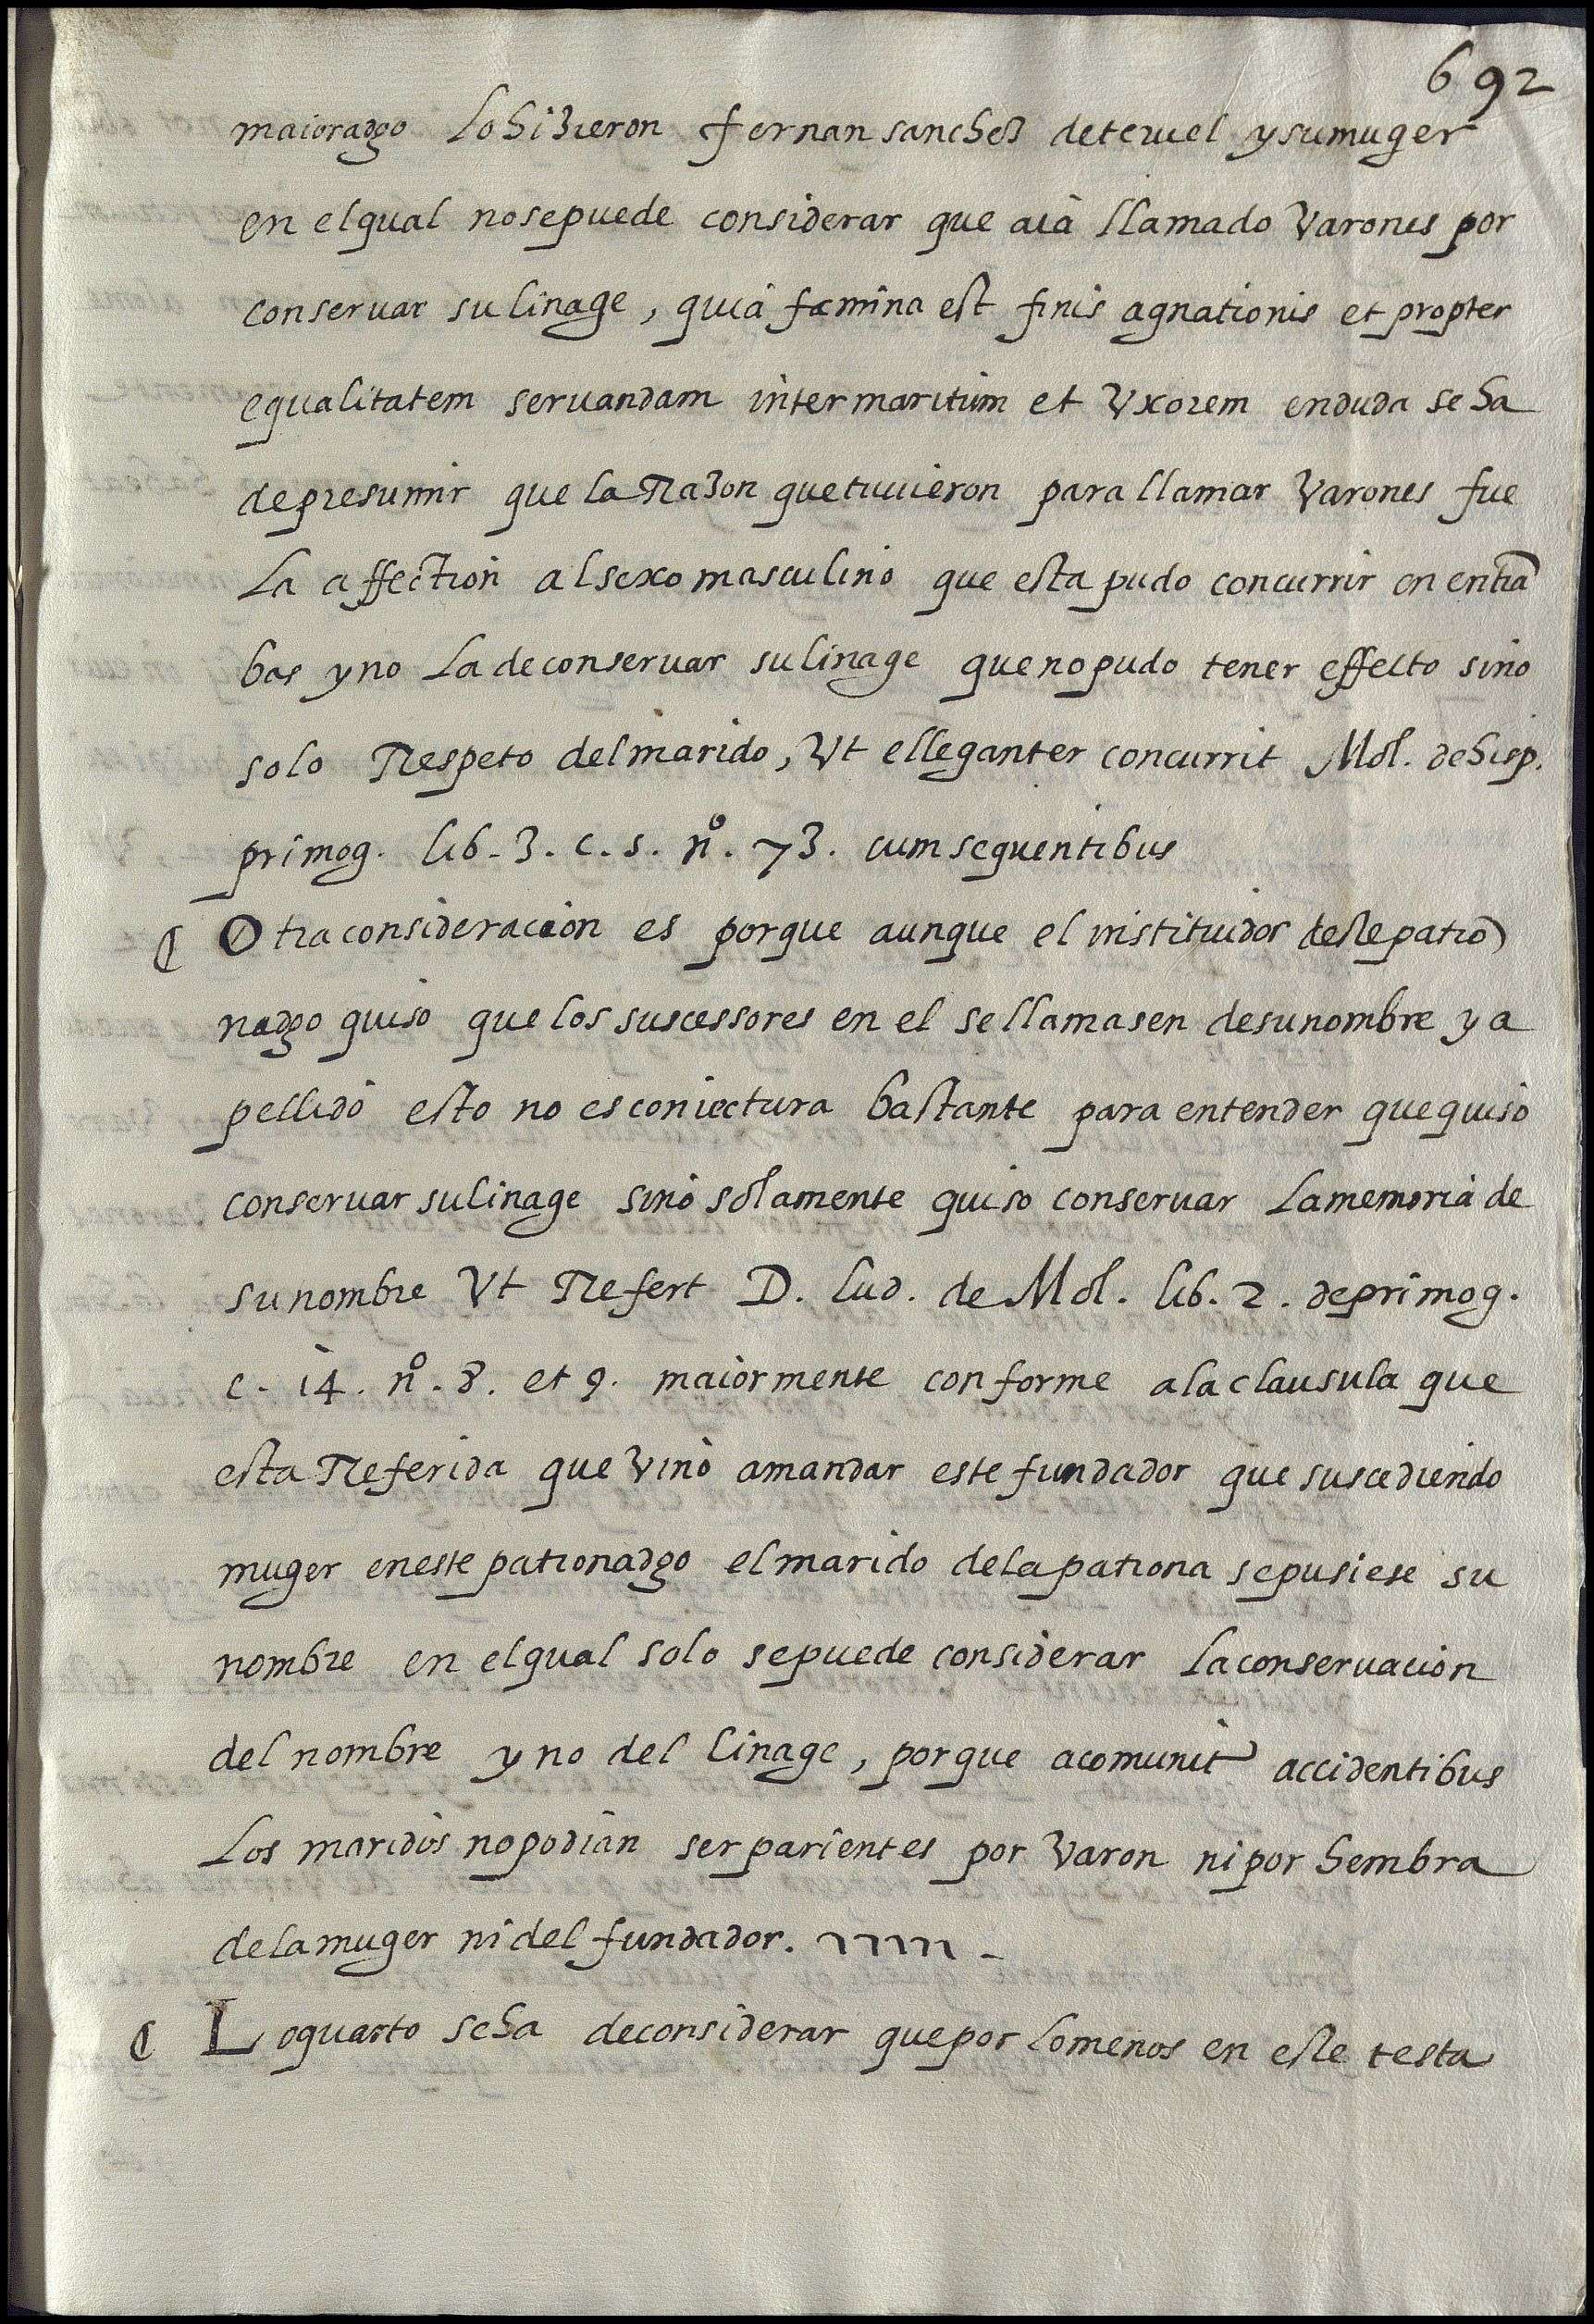 692
maioradgo lo hizieron fernan sanchez de teruel y su muger
en el qual no se puede considerar que aia llamado Varones por
conseruar su linage, quia fæmina est finis agnationis et propter
equalitatem seruandam inter maritum et Vxorem en duda se ha
de presumir que la Razon que tuuieron para llamar Varones fue
La affection al sexo masculino que esta pudo concurrir en entrã
bas y no la de conseruar su linage que no pudo tener effecto sino
solo Respeto del marido, Vt elleganter concurrit Mol. de hisp.
primog. lib. 3. c. 5. nº. 73. cum sequentibus
¶ Otra consideracion es porque aunque el instituidor deste patro
nadgo quiso que los suscessores en el se llamasen de su nombre y a
pellido esto no es coniectura bastante para entender que quiso
conseruar su linage sino solamente quiso conseruar la memoria de
su nombre Vt Refert D. Lud. de Mol. lib. 2. de primog.
c. 14. nº. 8. et 9. maiormente conforme a la clausula que
esta Referida que Vino a mandar este fundador que suscediendo
muger en este patronadgo el marido de la patrona se pusiese su
nombre en el qual solo se puede considerar la conseruacion
del nombre y no del linage, porque a comunit accidentibus
Los maridos no podian ser parientes por Varon ni por hembra
de la muger ni del fundador.
¶ Lo quarto se ha de considerar que por lo menos en este testa